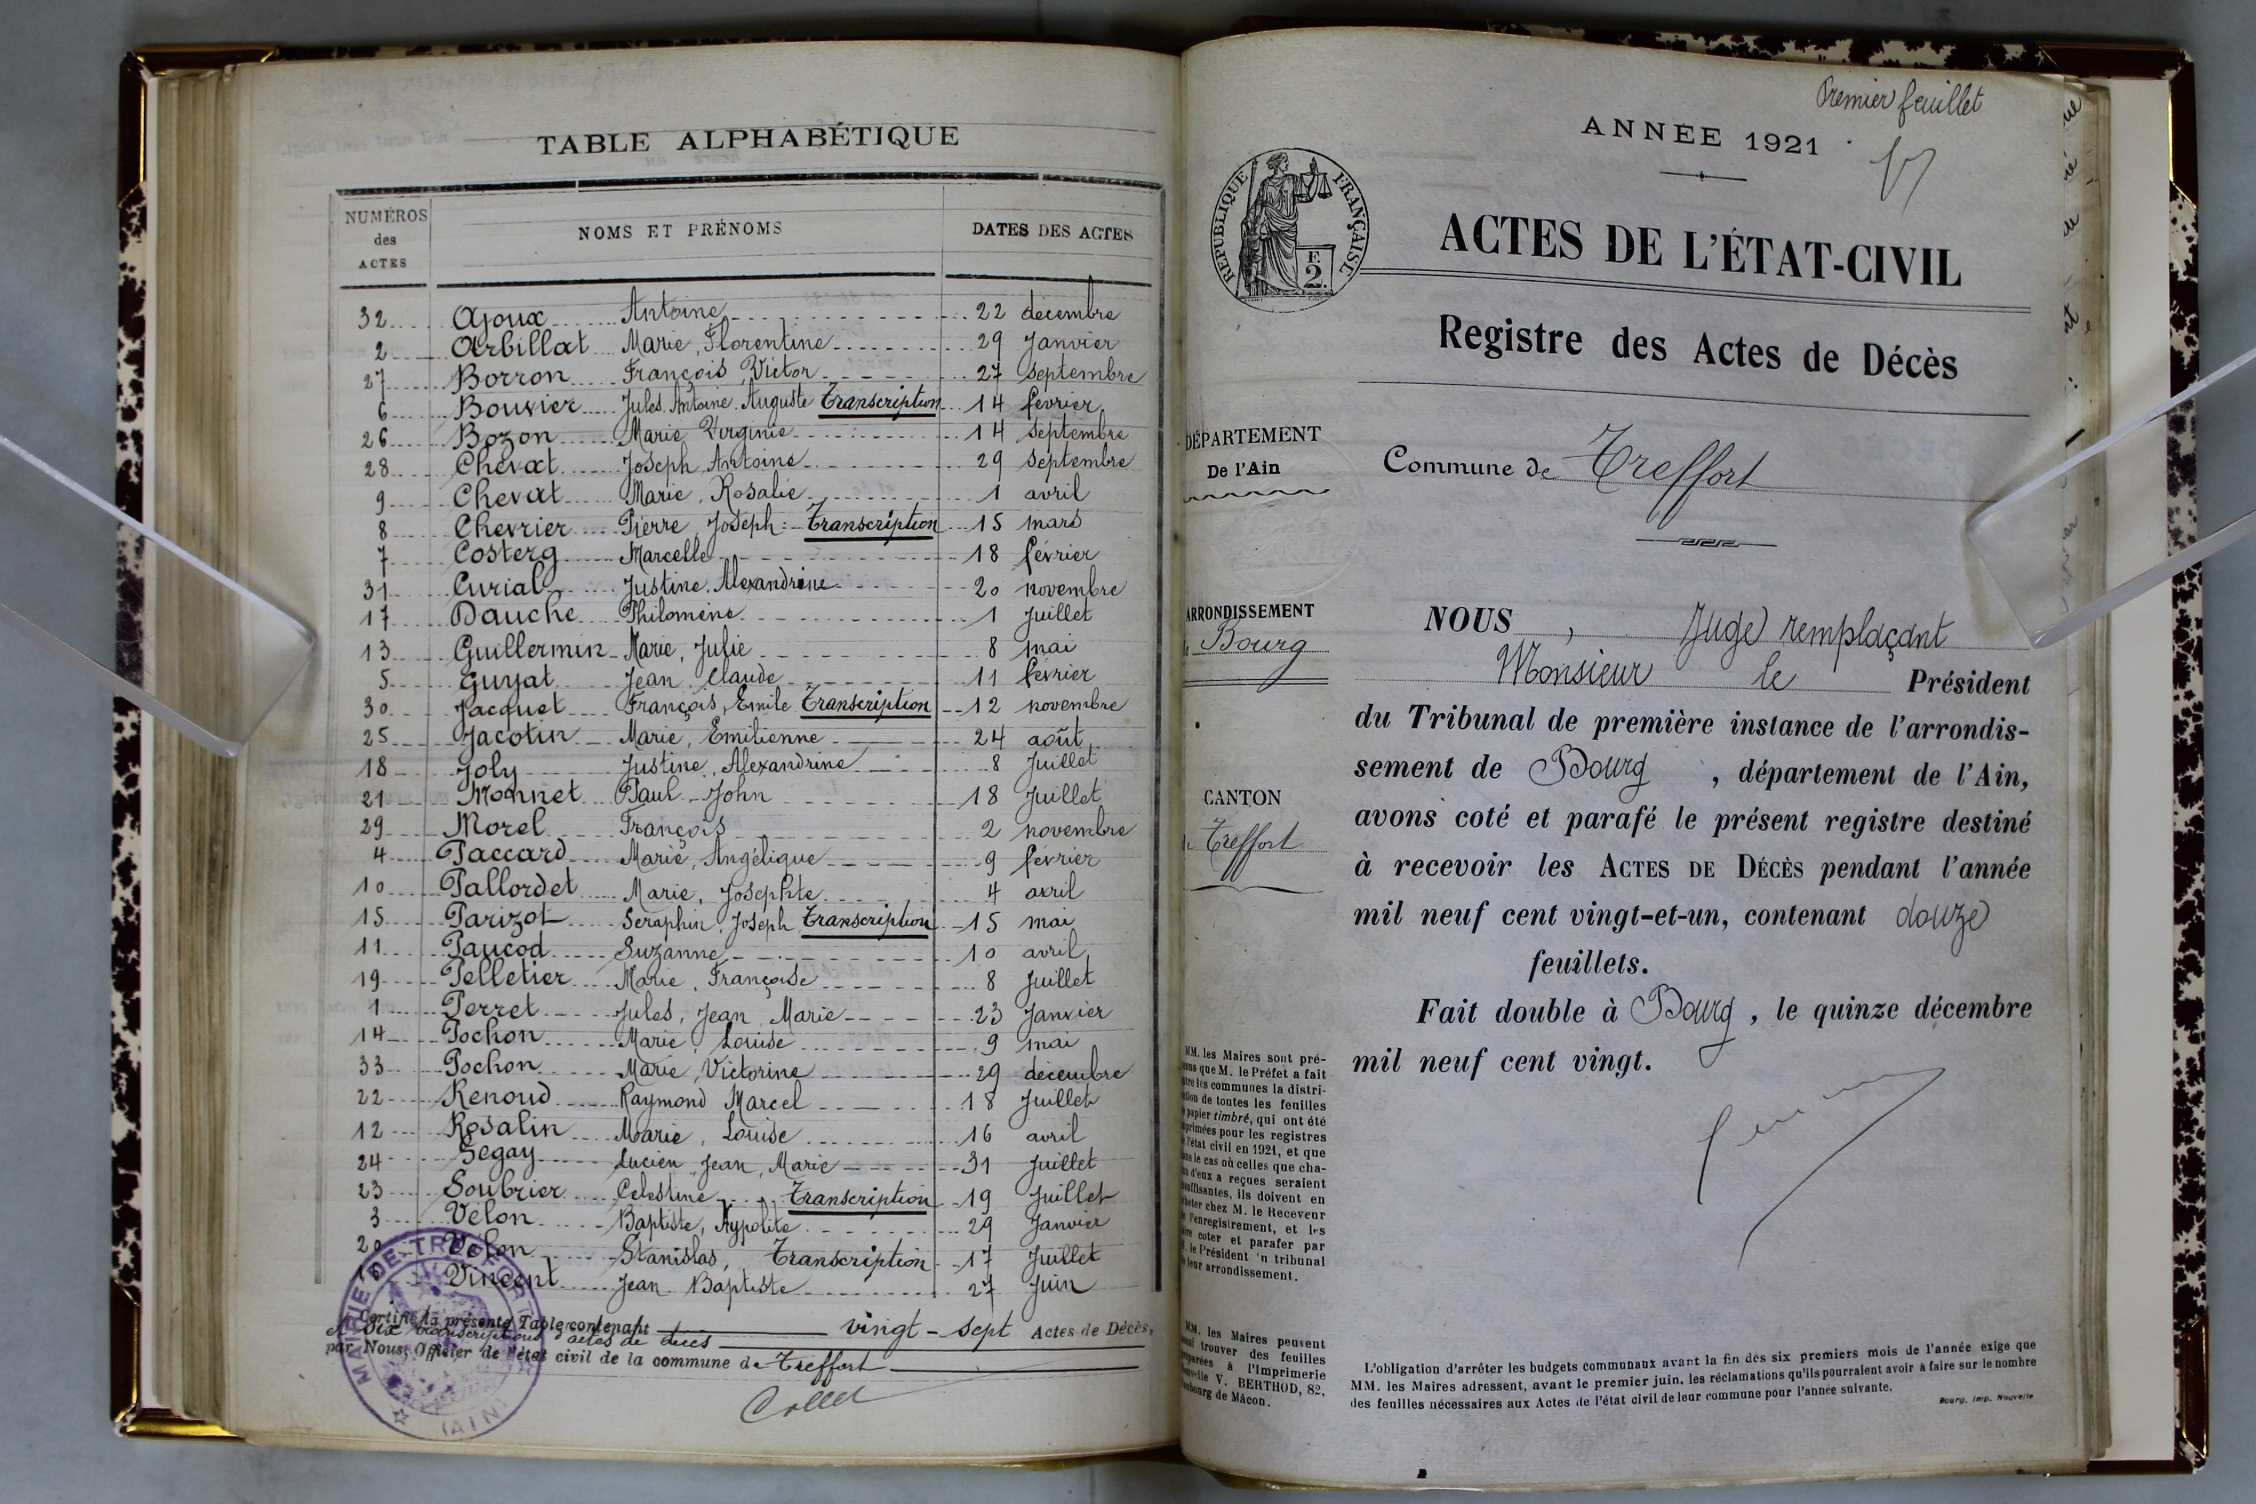 TABLE ALPHABÉTIQUE
NUMÉROS des ACTES NOMS ET PRÉNOMS DATES DES ACTES
32 Ajoux Antoine 22 décembre
2 Arbillat Marie, Florentine 29 Janvier
27 Borron François, Victor 27 Septembre
6 Bouvier Jules Antoine Auguste Transcription 14 février
26 Bozon Marie Virginie 14 Septembre
28 Chevat Joseph Antoine 29 Septembre
9 Chevat Marie, Rosalie 1 avril
8 Chevrier Pierre, Joseph Transcription 15 mars
7 Costerg Marcelle 18 février
31 Curial Justine, Alexandrine 20 novembre
17 Dauche Philomène 1 Juillet
13 Guillermin Marie, Julie 8 mai
5 Guyat Jean Claude 11 février
30 Jacquet François, Emile Transcription 12 novembre
25 Jacotin Marie, Emilienne 24 août
18 Joly Justine, Alexandrine 8 Juillet
21 Monnet Paul John 18 Juillet
29 Morel François 2 novembre
4 Paccard Marie, Angélique 9 février
10 Pallordet Marie, Josephte 4 avril
15 Parizot Seraphin, Joseph Transcription 15 mai
11 Paucod Suzanne 10 avril
19 Pelletier Marie, Françoise 8 Juillet
1 Perret Jules, Jean Marie 23 Janvier
14 Pochon Marie, Louise 9 mai
33 Pochon Marie, Victorine 29 décembre
22 Renoud Raymond Marcel 18 Juillet
12 Rosalin Marie, Louise 16 avril
24 Segay Lucien, Jean, Marie 31 Juillet
23 Soubrier Celestine Transcription 19 Juillet
3 Velon Baptiste, Hypolite 29 Janvier
20 Velon Stanislas, Transcription 17 Juillet
Vincent Jean Baptiste 27 Juin
Certifié la présente Table contenant vingt-sept Actes de Décès,
et six transcriptions d'actes de décès
par Nous, Officier de l'état civil de la commune de Treffort
Collet
MAIRIE DE TREFFORT (AIN)
Premier feuillet
ANNÉE 1921
RÉPUBLIQUE FRANÇAISE
F. 2.
ACTES DE L'ÉTAT-CIVIL
Registre des Actes de Décès
DÉPARTEMENT
De l'Ain
Commune de Treffort
ARRONDISSEMENT
Bourg
CANTON
Treffort
NOUS, Juge remplaçant
Monsieur le Président
du Tribunal de première instance de l'arrondis-
sement de Bourg, département de l'Ain,
avons coté et parafé le présent registre destiné
à recevoir les ACTES DE DÉCÈS pendant l'année
mil neuf cent vingt-et-un, contenant douze
feuillets.
Fait double à Bourg, le quinze décembre
mil neuf cent vingt.
MM. les Maires sont pré-
que M. le Préfet a fait
les communes la distri-
de toutes les feuilles
papier timbré, qui ont été
pour les registres
l'état civil en 1921, et que
le cas où celles que cha-
d'eux a reçues seraient
ils doivent en
chez M. le Receveur
l'enregistrement, et les
coter et parafer par
le Président tribunal
leur arrondissement.
MM. les Maires peuvent
trouver des feuilles
à l'Imprimerie
V. BERTHOD, 82,
de Mâcon.
L'obligation d'arrêter les budgets communaux avant la fin des six premiers mois de l'année exige que
MM. les Maires adressent, avant le premier juin, les réclamations qu'ils pourraient avoir à faire sur le nombre
des feuilles nécessaires aux Actes de l'état civil de leur commune pour l'année suivante.
Bourg, Imp. Nouvelle